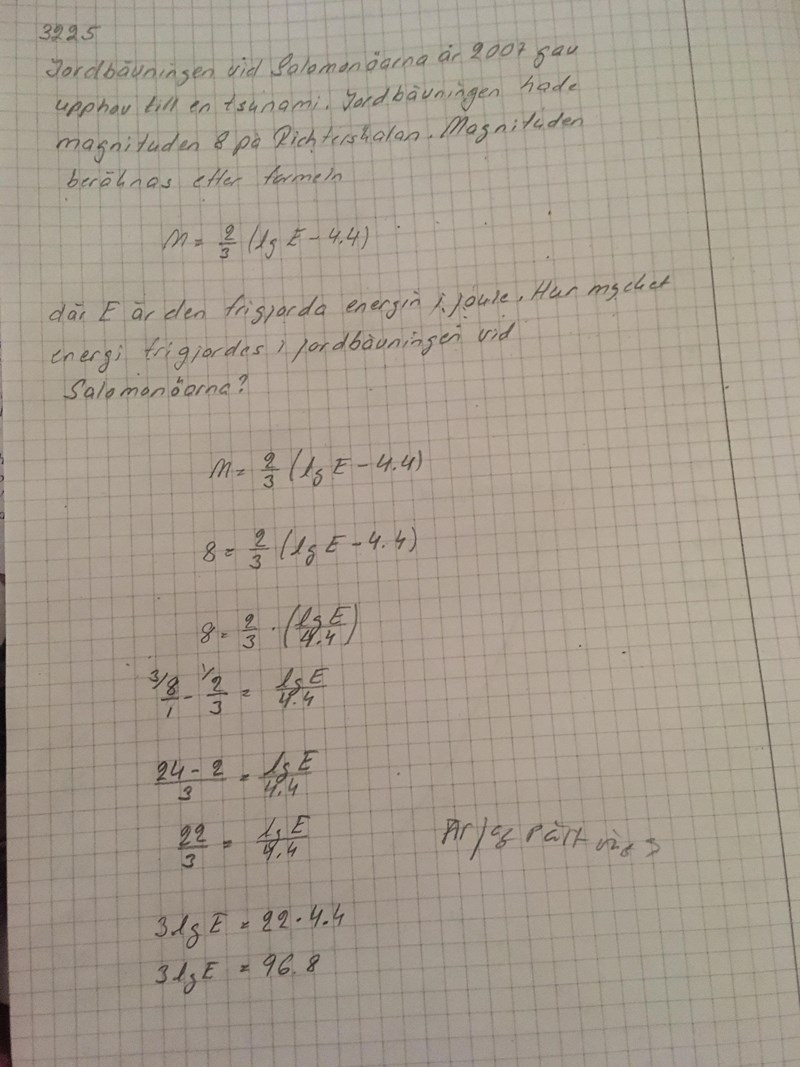 3225
Jordbävningen vid Salomonöarna år 2007 gav
upphov till en tsunami. Jordbävningen hade
magnituden 8 på Richterskalan. Magnituden
beräknas efter formeln
M = 2/3 (lg E - 4.4)
där E är den frigjorda energin i joule. Hur mycket
energi frigjordes i jordbävningen vid
Salomonöarna?
M = 2/3 (lg E - 4.4)
8 = 2/3 (lg E - 4.4)
8 = 2/3 · (lg E/4.4)
3/ 8/1 - 1/ 2/3 = lg E/4.4
24 - 2/3 = lg E/4.4
22/3 = lg E/4.4 Är jag på rätt väg
3 lg E = 22 · 4.4
3 lg E = 96.8